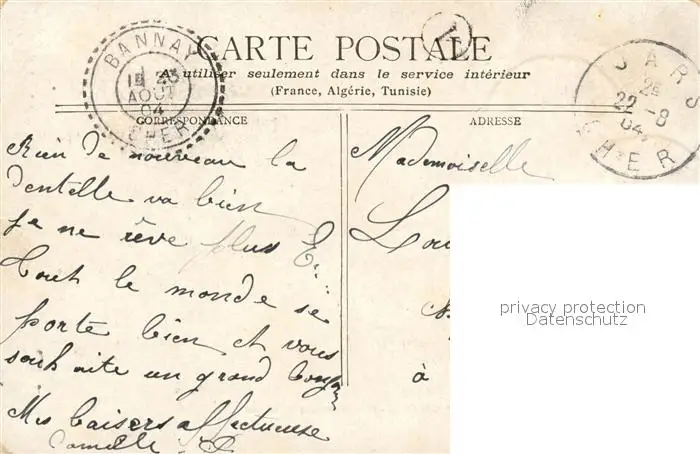 CARTE POSTALE
A utiliser seulement dans le service intérieur
(France, Algérie, Tunisie)
BANNAY
23
AOUT
04
CHER
JARS
22-8
04
CHER
CORRESPONDANCE
Rien de nouveau la
dentelle va bien
je ne rêve plus
Tout le monde se
porte bien et vous
souhaite un grand bonjour
Mes baisers affectueuse
Camille
ADRESSE
Mademoiselle
Lou
à
privacy protection
Datenschutz